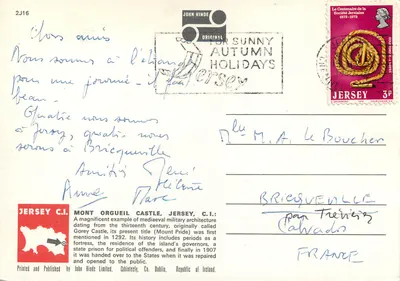 2J16
JOHN HINDE
ORIGINAL
FOR SUNNY
AUTUMN
HOLIDAYS
Jersey
Le Centenaire de la
Société Jersiaise
1873-1973
JERSEY 3p
Chers amis
Nous sommes à l'étranger
pour une journée - il fait
beau -
4 nous sommes
à Jersey,
serons à Bricqueville
Amitiés René
Hélène
Anne Marc
Mlle M. A. le Boucher
BRICQUEVILLE
par Trévières
Calvados
FRANCE
JERSEY C.I.
MONT ORGUEIL CASTLE, JERSEY, C.I.:
A magnificent example of mediaeval military architecture
dating from the thirteenth century, originally called
Gorey Castle, its present title (Mount Pride) was first
mentioned in 1292. Its history includes periods as a
fortress, the residence of the island's governors, a
state prison for political offenders, and finally in 1907
it was handed over to the States when it was repaired
and opened to the public.
Printed and Published by John Hinde Limited. Cabinteely, Co. Dublin. Republic of Ireland.